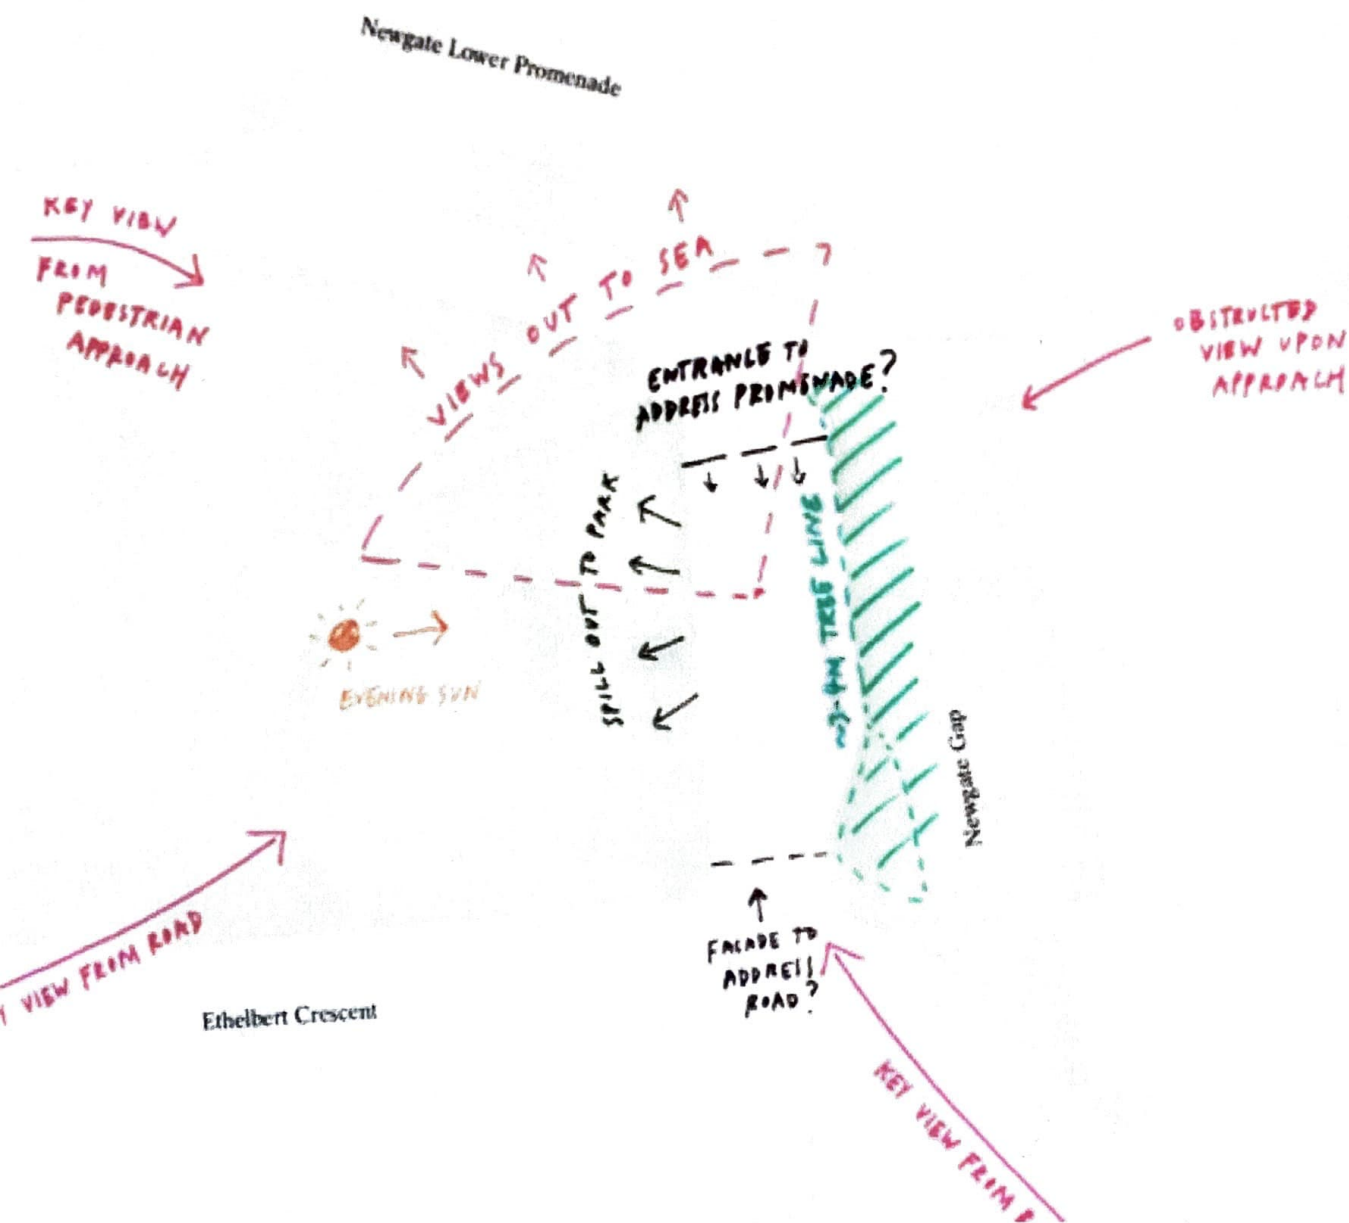 Newgate Lower Promenade
KEY VIEW
FROM
PEDESTRIAN
APPROACH
VIEWS OUT TO SEA
ENTRANCE TO
ADDRESS PROMENADE?
OBSTRUCTED
VIEW UPON
APPROACH
SPILL OUT TO PARK
~3-4M TREE LINE
EVENING SUN
Newgate Gap
VIEW FROM ROAD
FACADE TO
ADDRESS
ROAD?
Ethelbert Crescent
KEY VIEW FROM